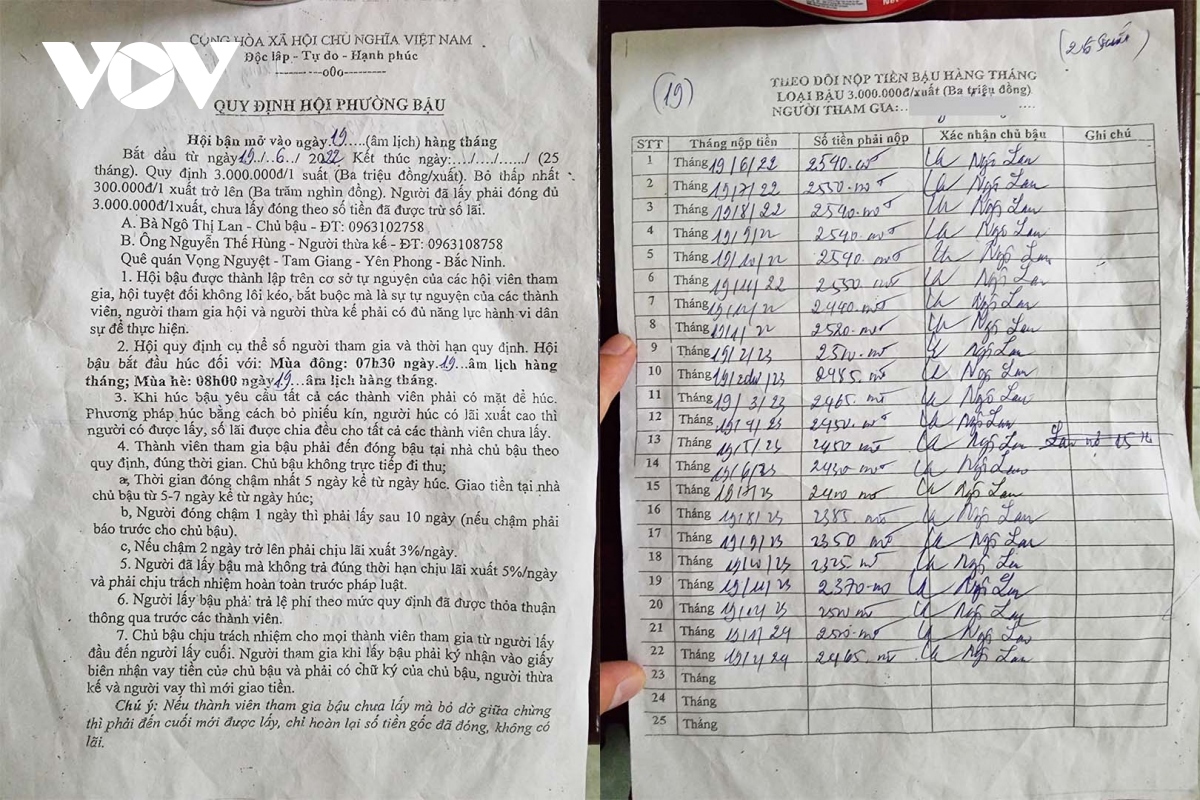 VOV
CỘNG HÒA XÃ HỘI CHỦ NGHĨA VIỆT NAM
Độc lập - Tự do - Hạnh phúc
---------o0o---------
QUY ĐỊNH HỘI PHƯỜNG BẬU
Hội bận mở vào ngày 19.....(âm lịch) hàng tháng
Bắt dầu từ ngày 19../..6../ 2022 Kết thúc ngày:..../..../....../ (25
tháng). Quy định 3.000.000đ/1 suất (Ba triệu đồng/xuất). Bỏ thấp nhất
300.000đ/1 xuất trở lên (Ba trăm nghìn đồng). Người đã lấy phải đóng đủ
3.000.000đ/1xuất, chưa lấy đóng theo số tiền đã được trừ số lãi.
A. Bà Ngô Thị Lan - Chủ bậu - ĐT: 0963102758
B. Ông Nguyễn Thế Hùng - Người thừa kế - ĐT: 0963108758
Quê quán Vọng Nguyệt - Tam Giang - Yên Phong - Bắc Ninh.
1. Hội bậu được thành lập trên cơ sở tự nguyện của các hội viên tham
gia, hội tuyệt đối không lôi kéo, bắt buộc mà là sự tự nguyện của các thành
viên, người tham gia hội và người thừa kế phải có đủ năng lực hành vi dân
sự để thực hiện.
2. Hội quy định cụ thể số người tham gia và thời hạn quy định. Hội
bậu bắt đầu húc đối với: Mùa đông: 07h30 ngày.19...âm lịch hàng
tháng; Mùa hè: 08h00 ngày19....âm lịch hàng tháng.
3. Khi húc bậu yêu cầu tất cả các thành viên phải có mặt để húc.
Phương pháp húc bằng cách bỏ phiếu kín, người húc có lãi xuất cao thì
người có được lấy, số lãi được chia đều cho tất cả các thành viên chưa lấy.
4. Thành viên tham gia bậu phải đến đóng bậu tại nhà chủ bậu theo
quy định, đúng thời gian. Chủ bậu không trực tiếp đi thu;
a, Thời gian đóng chậm nhất 5 ngày kể từ ngày húc. Giao tiền tại nhà
chủ bậu từ 5-7 ngày kể từ ngày húc;
b, Người đóng chậm 1 ngày thì phải lấy sau 10 ngày (nếu chậm phải
báo trước cho chủ bậu).
c, Nếu chậm 2 ngày trở lên phải chịu lãi xuất 3%/ngày.
5. Người đã lấy bậu mà không trả đúng thời hạn chịu lãi xuất 5%/ngày
và phải chịu trách nhiệm hoàn toàn trước pháp luật.
6. Người lấy bậu phải trả lệ phí theo mức quy định đã được thỏa thuận
thông qua trước các thành viên.
7. Chủ bậu chịu trách nhiệm cho mọi thành viên tham gia từ người lấy
đầu đến người lấy cuối. Người tham gia khi lấy bậu phải ký nhận vào giấy
biên nhận vay tiền của chủ bậu và phải có chữ ký của chủ bậu, người thừa
kế và người vay thì mới giao tiền.
Chú ý: Nếu thành viên tham gia bậu chưa lấy mà bỏ dở giữa chừng
thì phải đến cuối mới được lấy, chỉ hoàn lại số tiền gốc đã đóng, không có
lãi.
(19)
THEO DÕI NỘP TIỀN BẬU HÀNG THÁNG
LOẠI BẬU 3.000.000đ/xuất (Ba triệu đồng)
NGƯỜI THAM GIA:..
STT Tháng nộp tiền Số tiền phải nộp Xác nhận chủ bậu Ghi chú
1 Tháng 19/6/22 2540 Ngô Lan
2 Tháng 19/7/22 2550 Ngô Lan
3 Tháng 19/8/22 2540 Ngô Lan
4 Tháng 19/9/22 2540 Ngô Lan
5 Tháng 19/10/22 2540 Ngô Lan
6 Tháng 19/11/22 2550 Ngô Lan
7 Tháng 19/12/22 2440 Ngô Lan
8 Tháng 19/1/22 2520 Ngô Lan
9 Tháng 19/2/23 Ngô Lan
10 Tháng 2485 Ngô Lan
11 Tháng 19/3/23 2465 Ngô Lan
12 Tháng 19/4/23 2450 Ngô Lan
13 Tháng 19/5/23 2450 Ngô Lan
14 Tháng 19/6/23 2430 Ngô Lan
15 Tháng 19/7/23 2400 Ngô Lan
16 Tháng 19/8/23 2385 Ngô Lan
17 Tháng 19/9/23 2350 Ngô Lan
18 Tháng 19/10/23 2325 Ngô Lan
19 Tháng 19/11/23 2370 Ngô Lan
20 Tháng 19/12/23 Ngô Lan
21 Tháng 19/1/24 Ngô Lan
22 Tháng 19/2/24 2465 Ngô Lan
23 Tháng
24 Tháng
25 Tháng